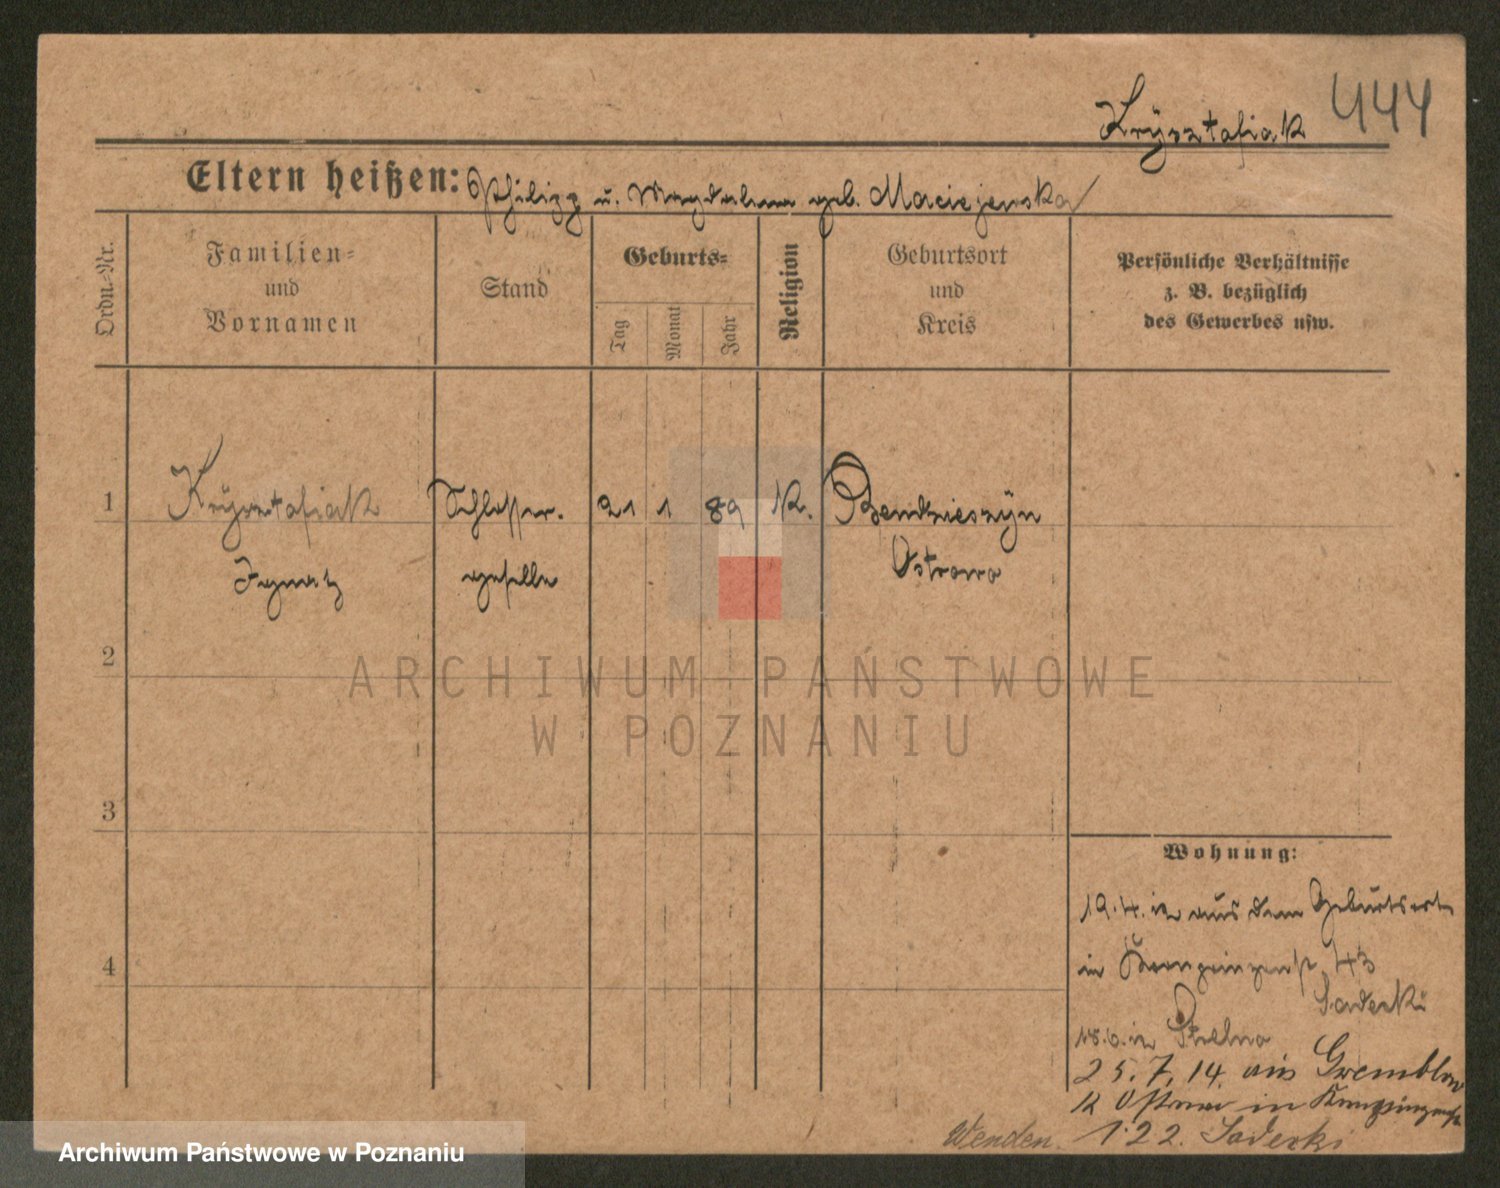 Krysztafiak 444
Eltern heißen: Philipp u. Magdalena geb. Maciejewska
Ordn.-Nr.
Familien-
und
Vornamen
Stand
Geburts-
Tag
Monat
Jahr
Religion
Geburtsort
und
Kreis
Persönliche Verhältnisse
z. B. bezüglich
des Gewerbes usw.
1 Krysztafiak Schlosser- 21 1 89 K. Bendzieszyn
Ignatz geselle Ostrowo
2
3
4
Wohnung:
19.4.12 aus dem Geburtsort
in Kronprinzenst 43
Sadecki
in
25.7.14 aus Gremblow
K Ostrowo in Kronprinzenst
122. Sadecki
Wenden.
ARCHIWUM PAŃSTWOWE
W POZNANIU
Archiwum Państwowe w Poznaniu